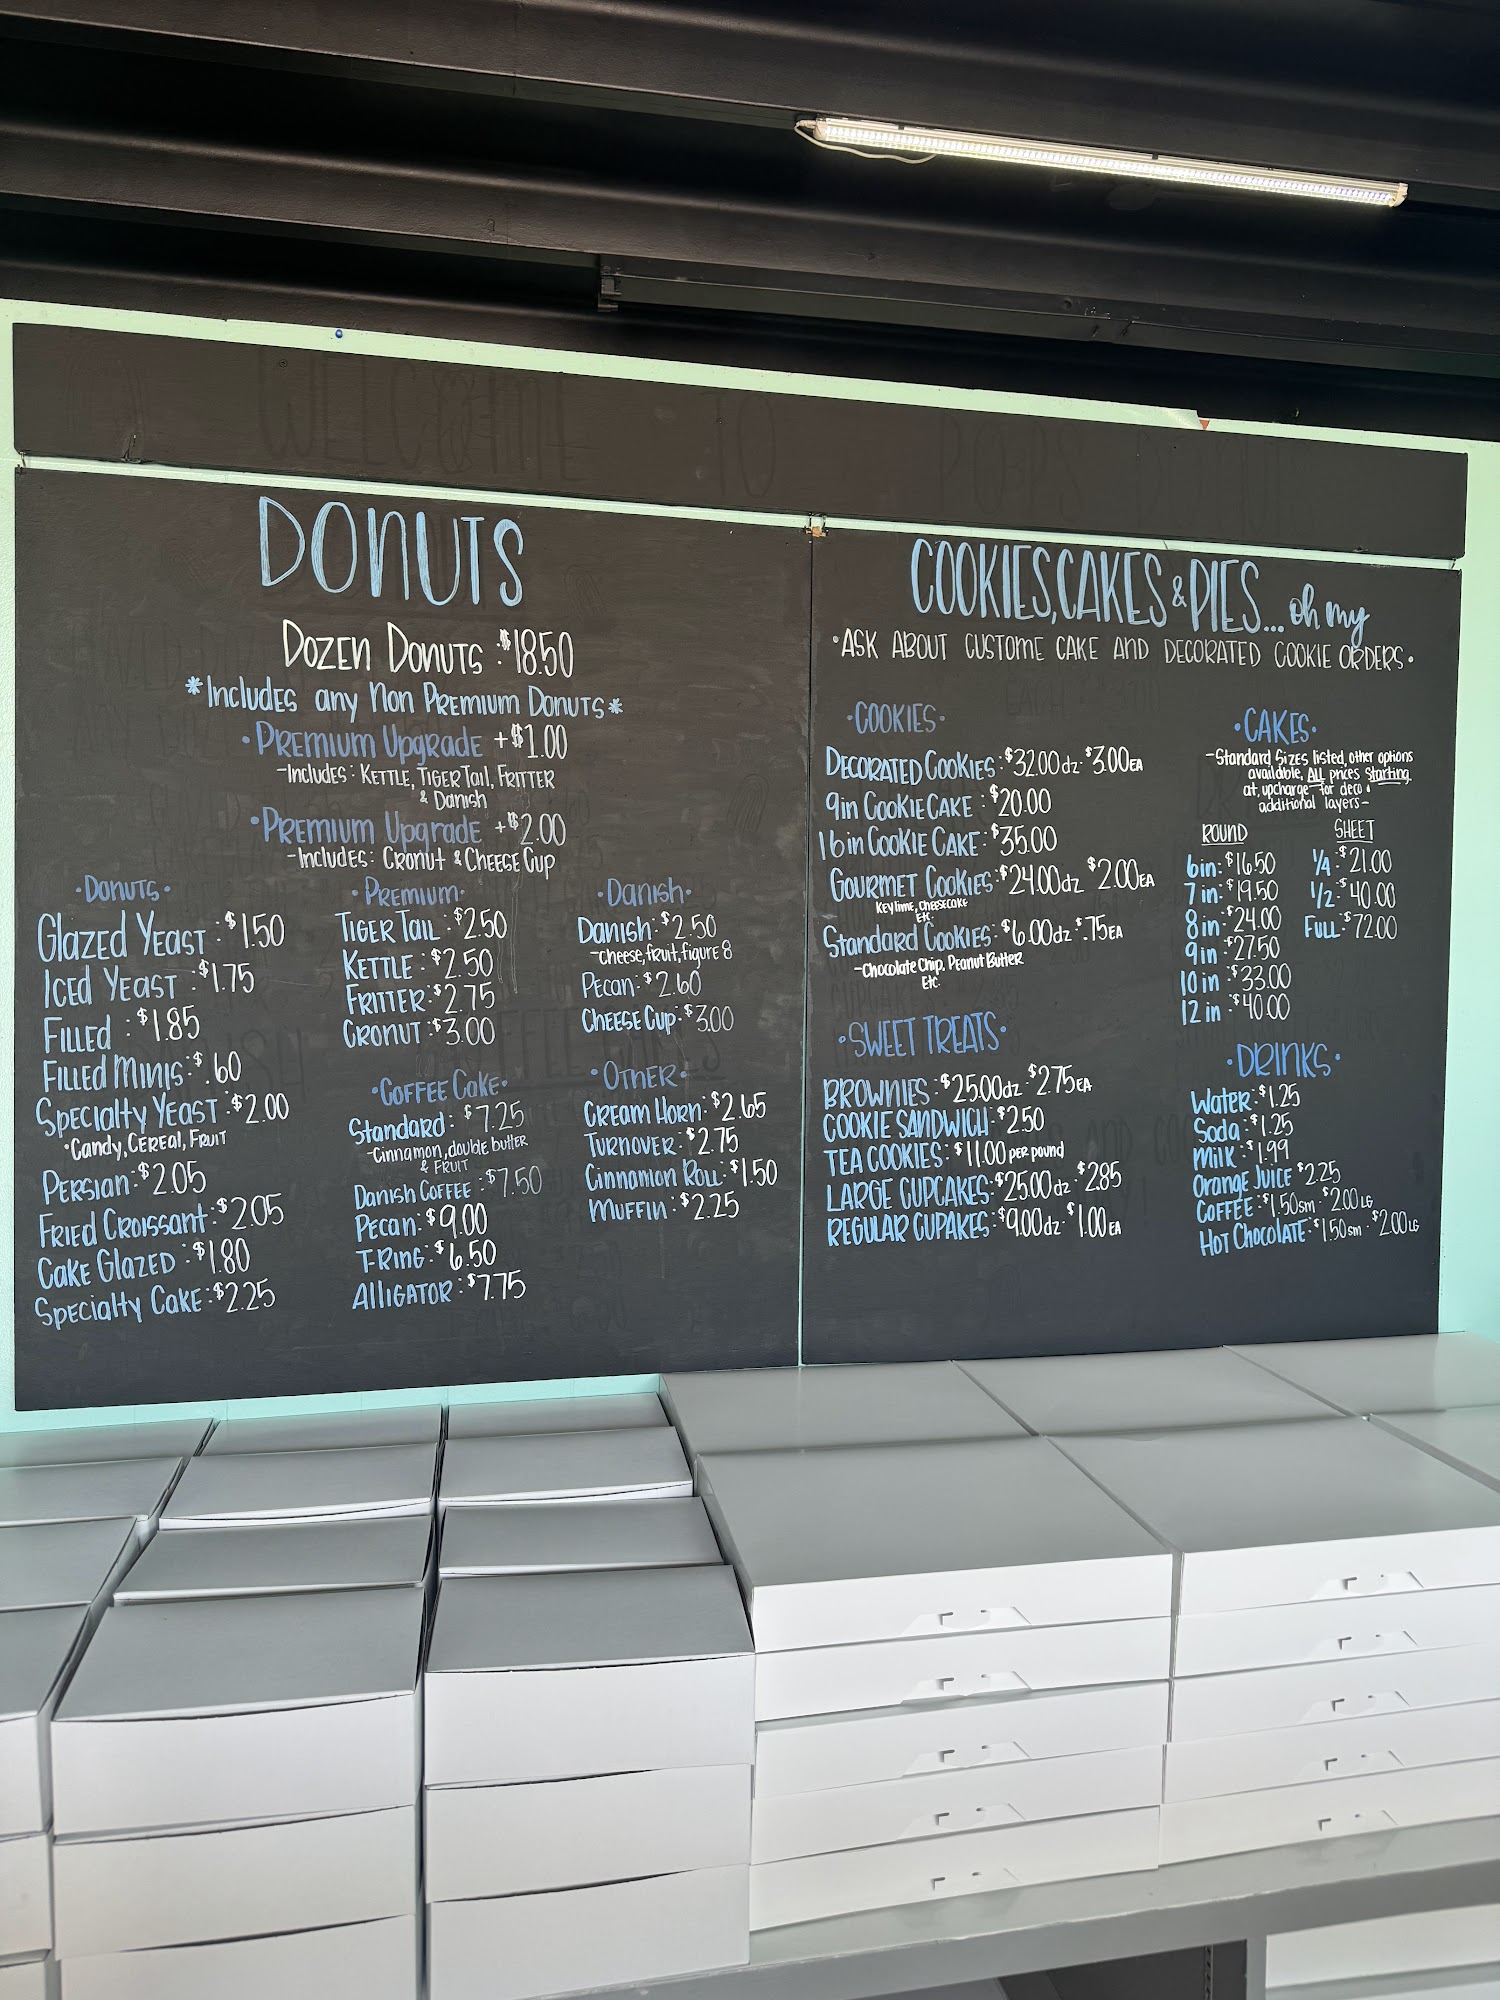 WELCOME TO POPS
DONUTS
DOZEN DONUTS : $18.50
*INCLUDES any Non PREMIUM DONUTS*
• PREMIUM UPGRADE +$1.00
-Includes: KETTLE, TIGER Tail, FRITTER
& Danish
• PREMIUM UPGRADE +$2.00
-Includes: CRONUT & CHEESE CUP
• DONUTS •
Glazed YEAST : $1.50
ICED YEAST : $1.75
FILLED : $1.85
FILLED MINIS: $.60
Specialty YEAST : $2.00
•Candy, CEREAL, FRUIT
PERSIAN: $2.05
FRIED CROISSANT: $2.05
CAKE GLAZED : $1.80
Specialty CAKE: $2.25
• PREMIUM •
TIGER Tail : $2.50
KETTLE : $2.50
FRITTER: $2.75
CRONUT : $3.00
• COFFEE Cake •
Standard : $7.25
-Cinnamon, double butter
& FRUIT
Danish COFFEE : $7.50
PECAN: $9.00
T-RING: $6.50
AlliGATOR : $7.75
• Danish •
DANISH: $2.50
-cheese, fruit, figure 8
PECAN: $2.60
CHEESE CUP: $3.00
• OTHER •
CREAM HORN: $2.65
TURNOVER: $2.75
CINNAMON ROLL: $1.50
MUFFIN: $2.25
COOKIES, CAKES & PIES... oh my
• ASK ABOUT CUSTOME CAKE AND DECORATED COOKIE ORDERS •
• COOKIES •
DECORATED COOKIES: $32.00 dz • $3.00 EA
9in COOKIE CAKE : $20.00
16 in COOKIE CAKE : $35.00
GOURMET COOKIES: $24.00 dz $2.00 EA
KEY lime, CHEESECAKE
Etc.
Standard COOKIES: $6.00 dz $.75 EA
-Chocolate Chip, Peanut Butter
Etc.
• SWEET TREATS •
BROWNIES : $25.00 dz • $2.75 EA
COOKIE SANDWICH: $2.50
TEA COOKIES: $11.00 PER POUND
LARGE CUPCAKES: $25.00 dz • $2.85
REGULAR CUPAKES: $9.00 dz • $1.00 EA
• CAKES •
-Standard Sizes listed, other options
available, ALL prices starting
at, upcharge for deco &
additional layers-
ROUND
6in: $16.50
7 in: $19.50
8 in: $24.00
9 in: $27.50
10 in : $33.00
12 in : $40.00
SHEET
1/4 : $21.00
1/2 : $40.00
FULL: $72.00
• DRINKS •
Water: $1.25
Soda : $1.25
Milk : $1.99
Orange JUICE $2.25
COFFEE : $1.50 sm • $2.00 LG
HOT CHOCOLATE: $1.50 sm • $2.00 LG